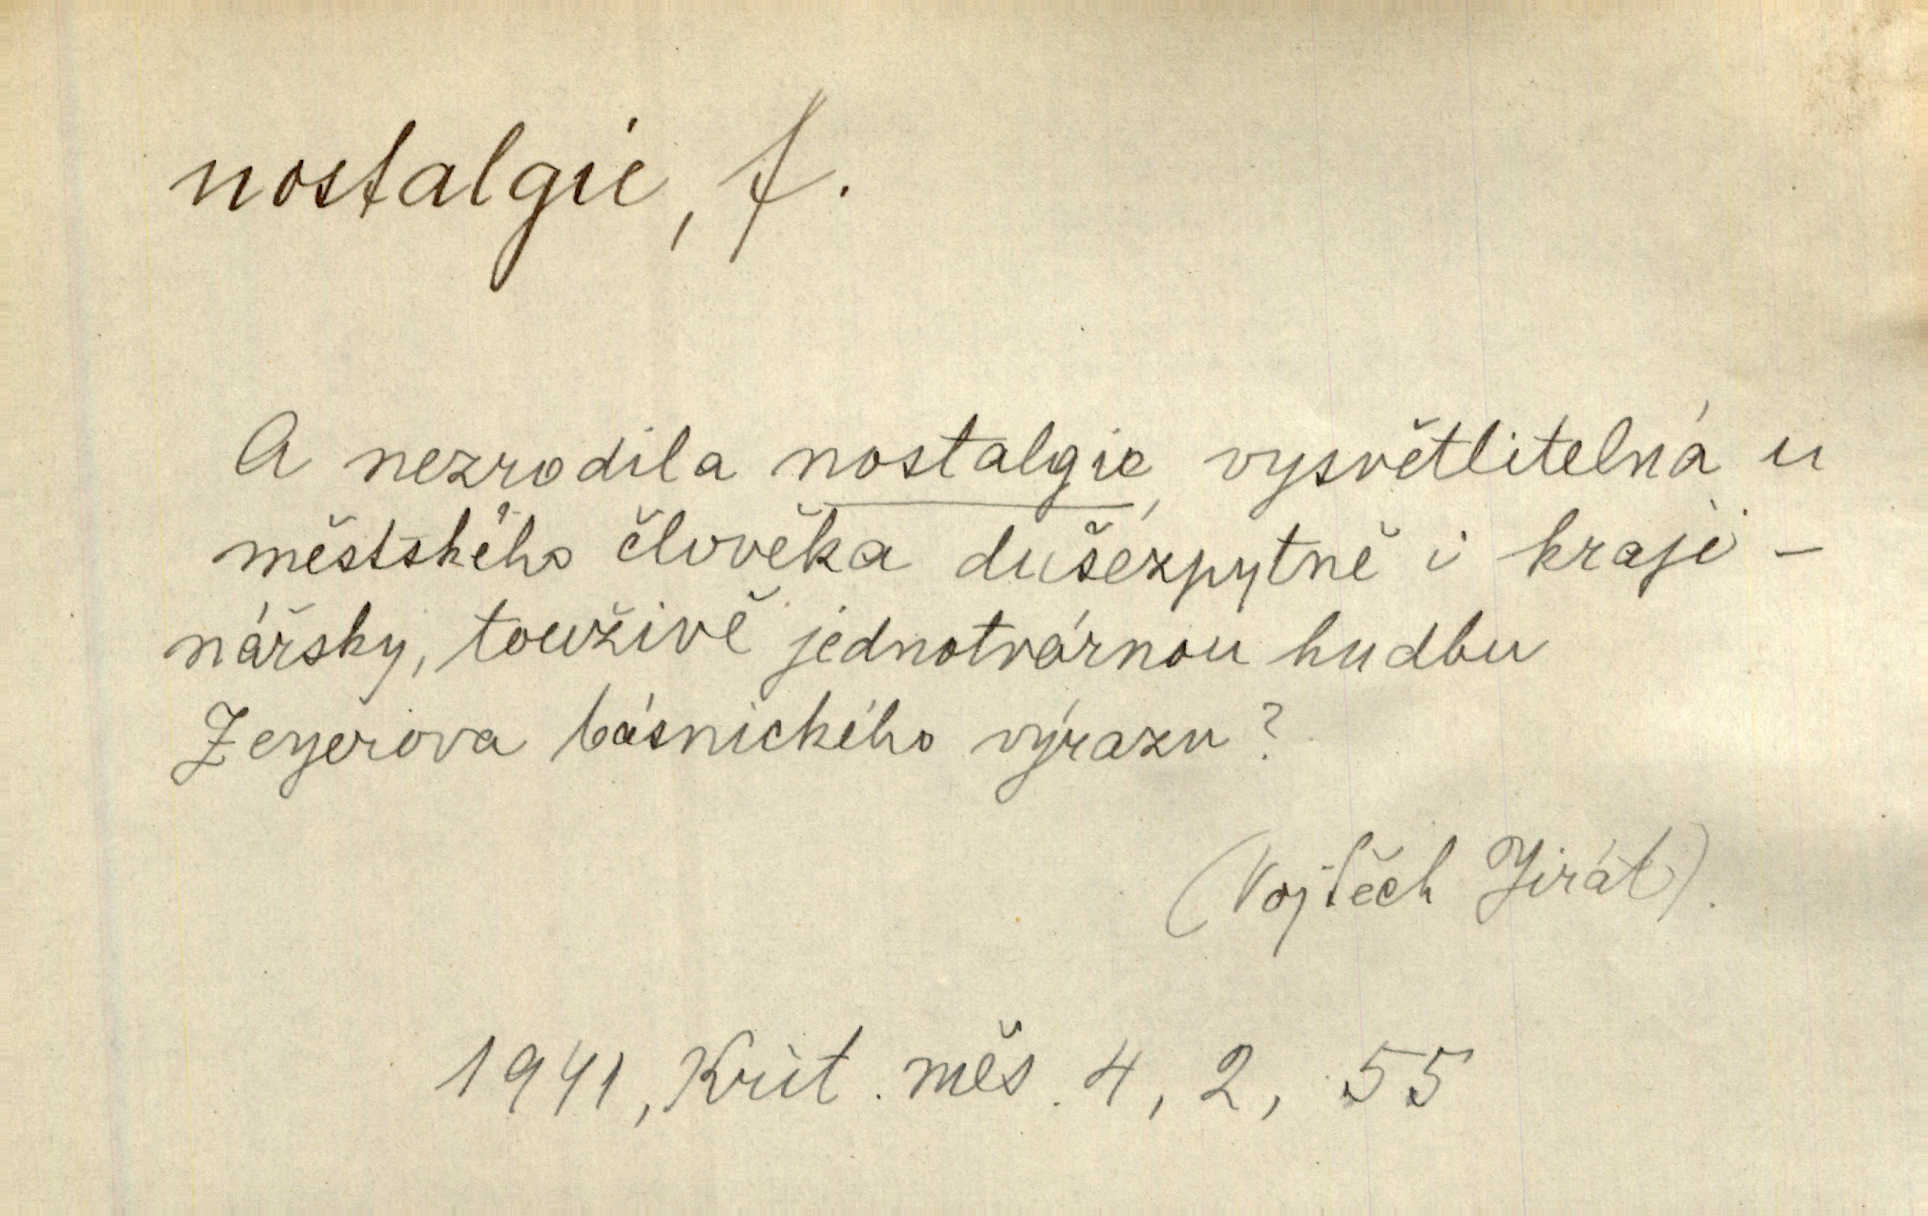 nostalgie, f.
A nezrodila nostalgie, vysvětlitelná u
městského člověka dušezpytně i kraji-
nářsky, touživě jednotvárnou hudbu
Zeyerova básnického výrazu?
(Vojtěch Jirát).
1941, Krit. měs. 4, 2, 55